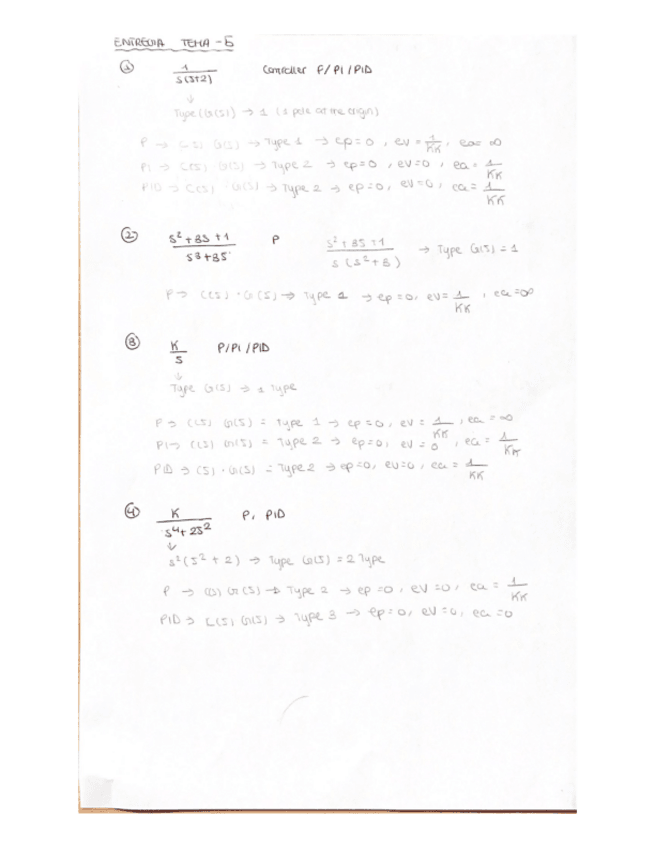 ENTREGA TEMA - 5
① 1 / s(s+2) Controller P/PI/PID
↓
Type (G(s)) → 1 (1 pole at the origin)
P → C(s) G(s) → Type 1 → ep=0, ev = 1/KK, ea = ∞
PI → C(s) G(s) → Type 2 → ep=0, ev=0, ea = 1/KK
PID → C(s) G(s) → Type 2 → ep=0, ev=0, ea = 1/KK
② s²+3s+1 / s3+3s P s²+3s+1 / s(s²+3) → Type G(s) = 1
P → C(s)·G(s) → Type 1 → ep=0, ev = 1/KK, ea=∞
③ K / s P/PI/PID
↓
Type G(s) → 1 Type
P → C(s) G(s) = Type 1 → ep=0, ev = 1/KK, ea = ∞
PI → C(s) G(s) = Type 2 → ep=0, ev = 0, ea = 1/KK
PID → C(s)·G(s) = Type 2 → ep=0, ev=0, ea = 1/KK
④ K / s⁴+2s² P, PID
↓
s²(s²+2) → Type G(s) = 2 Type
P → C(s) G(s) → Type 2 → ep=0, ev=0, ea = 1/KK
PID → C(s) G(s) → Type 3 → ep=0, ev=0, ea=0